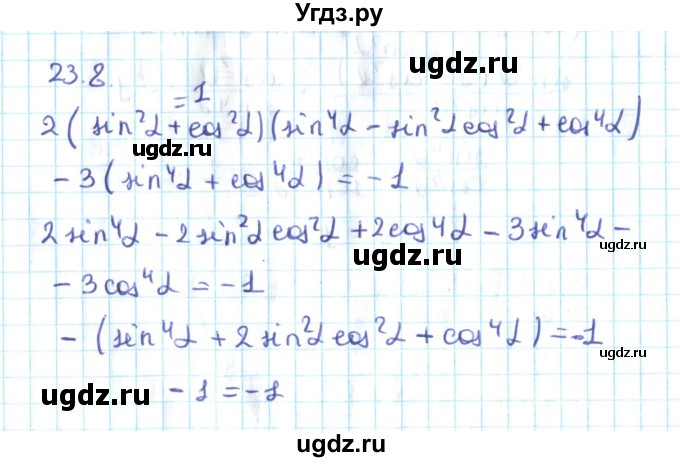 Угдз.ру
23.8
ugdz.ru
= 1
2(sin²α + cos²α)(sin⁴α - sin²α cos²α + cos⁴α)
ugdz.ru
- 3(sin⁴α + cos⁴α) = -1
2 sin⁴α - 2 sin²α cos²α + 2cos⁴α - 3sin⁴α -
ugdz.ru
ugdz.ru
- 3cos⁴α = -1
- (sin⁴α + 2 sin²α cos²α + cos⁴α) = -1
ugdz.ru
ugdz.ru
- 1 = -1
ugdz.ru